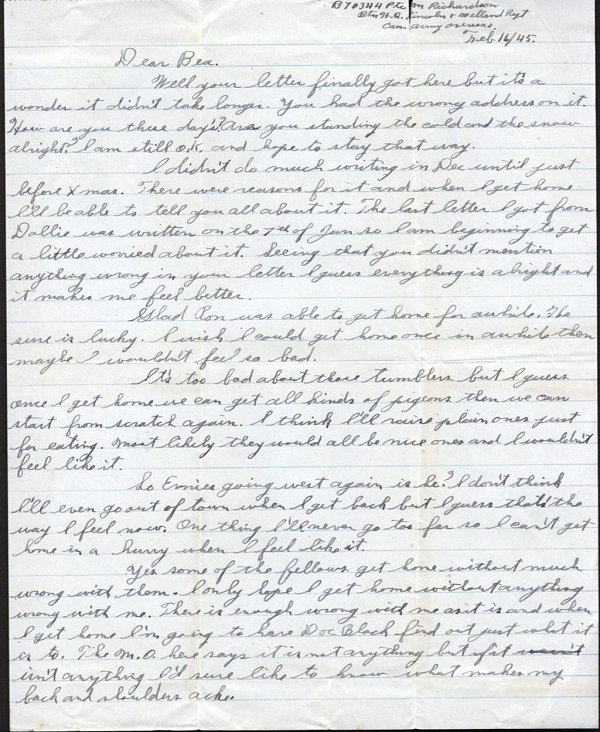 B70344 Pte Richardson
Btn H.Q. Lincoln & Welland Regt
Can army overseas
Feb 16/45.
Dear Bea.
Well your letter finally got here but it's a
wonder it didn't take longer. You had the wrong address on it.
How are you these days? Are you standing the cold and the snow
alright? I am still o.k. and hope to stay that way.
I didn't do much writing in Dec until just
before Xmas. There were reasons for it and when I get home
I'll be able to tell you all about it. The last letter I got from
Dollie was written on the 7th of Jan so I am beginning to get
a little worried about it. Seeing that you didn't mention
anything wrong in your letter I guess everything is alright and
it makes me feel better.
Glad Ron was able to get home for awhile. He
sure is lucky. I wish I could get home once in awhile then
maybe I wouldn't feel so bad.
It's too bad about those tumblers but I guess
once I get home we can get all kinds of pigeons then we can
start from scratch again. I think I'll raise plain ones just
for eating. Most likely they would all be nice ones and I wouldn't
feel like it.
So Ernies going west again is he? I don't think
I'll even go out of town when I get back but I guess that's the
way I feel now. One thing I'll never go too far so I can't get
home in a hurry when I feel like it.
Yes some of the fellows get home without much
wrong with them. I only hope I get home without anything
wrong with me. There is enough wrong with me as it is and when
I get home I'm going to have Doc Block find out just what it
is to. The M.O. here says it is not anything but if it wasn't
isn't anything I'd sure like to know what makes my
back and shoulders ache.